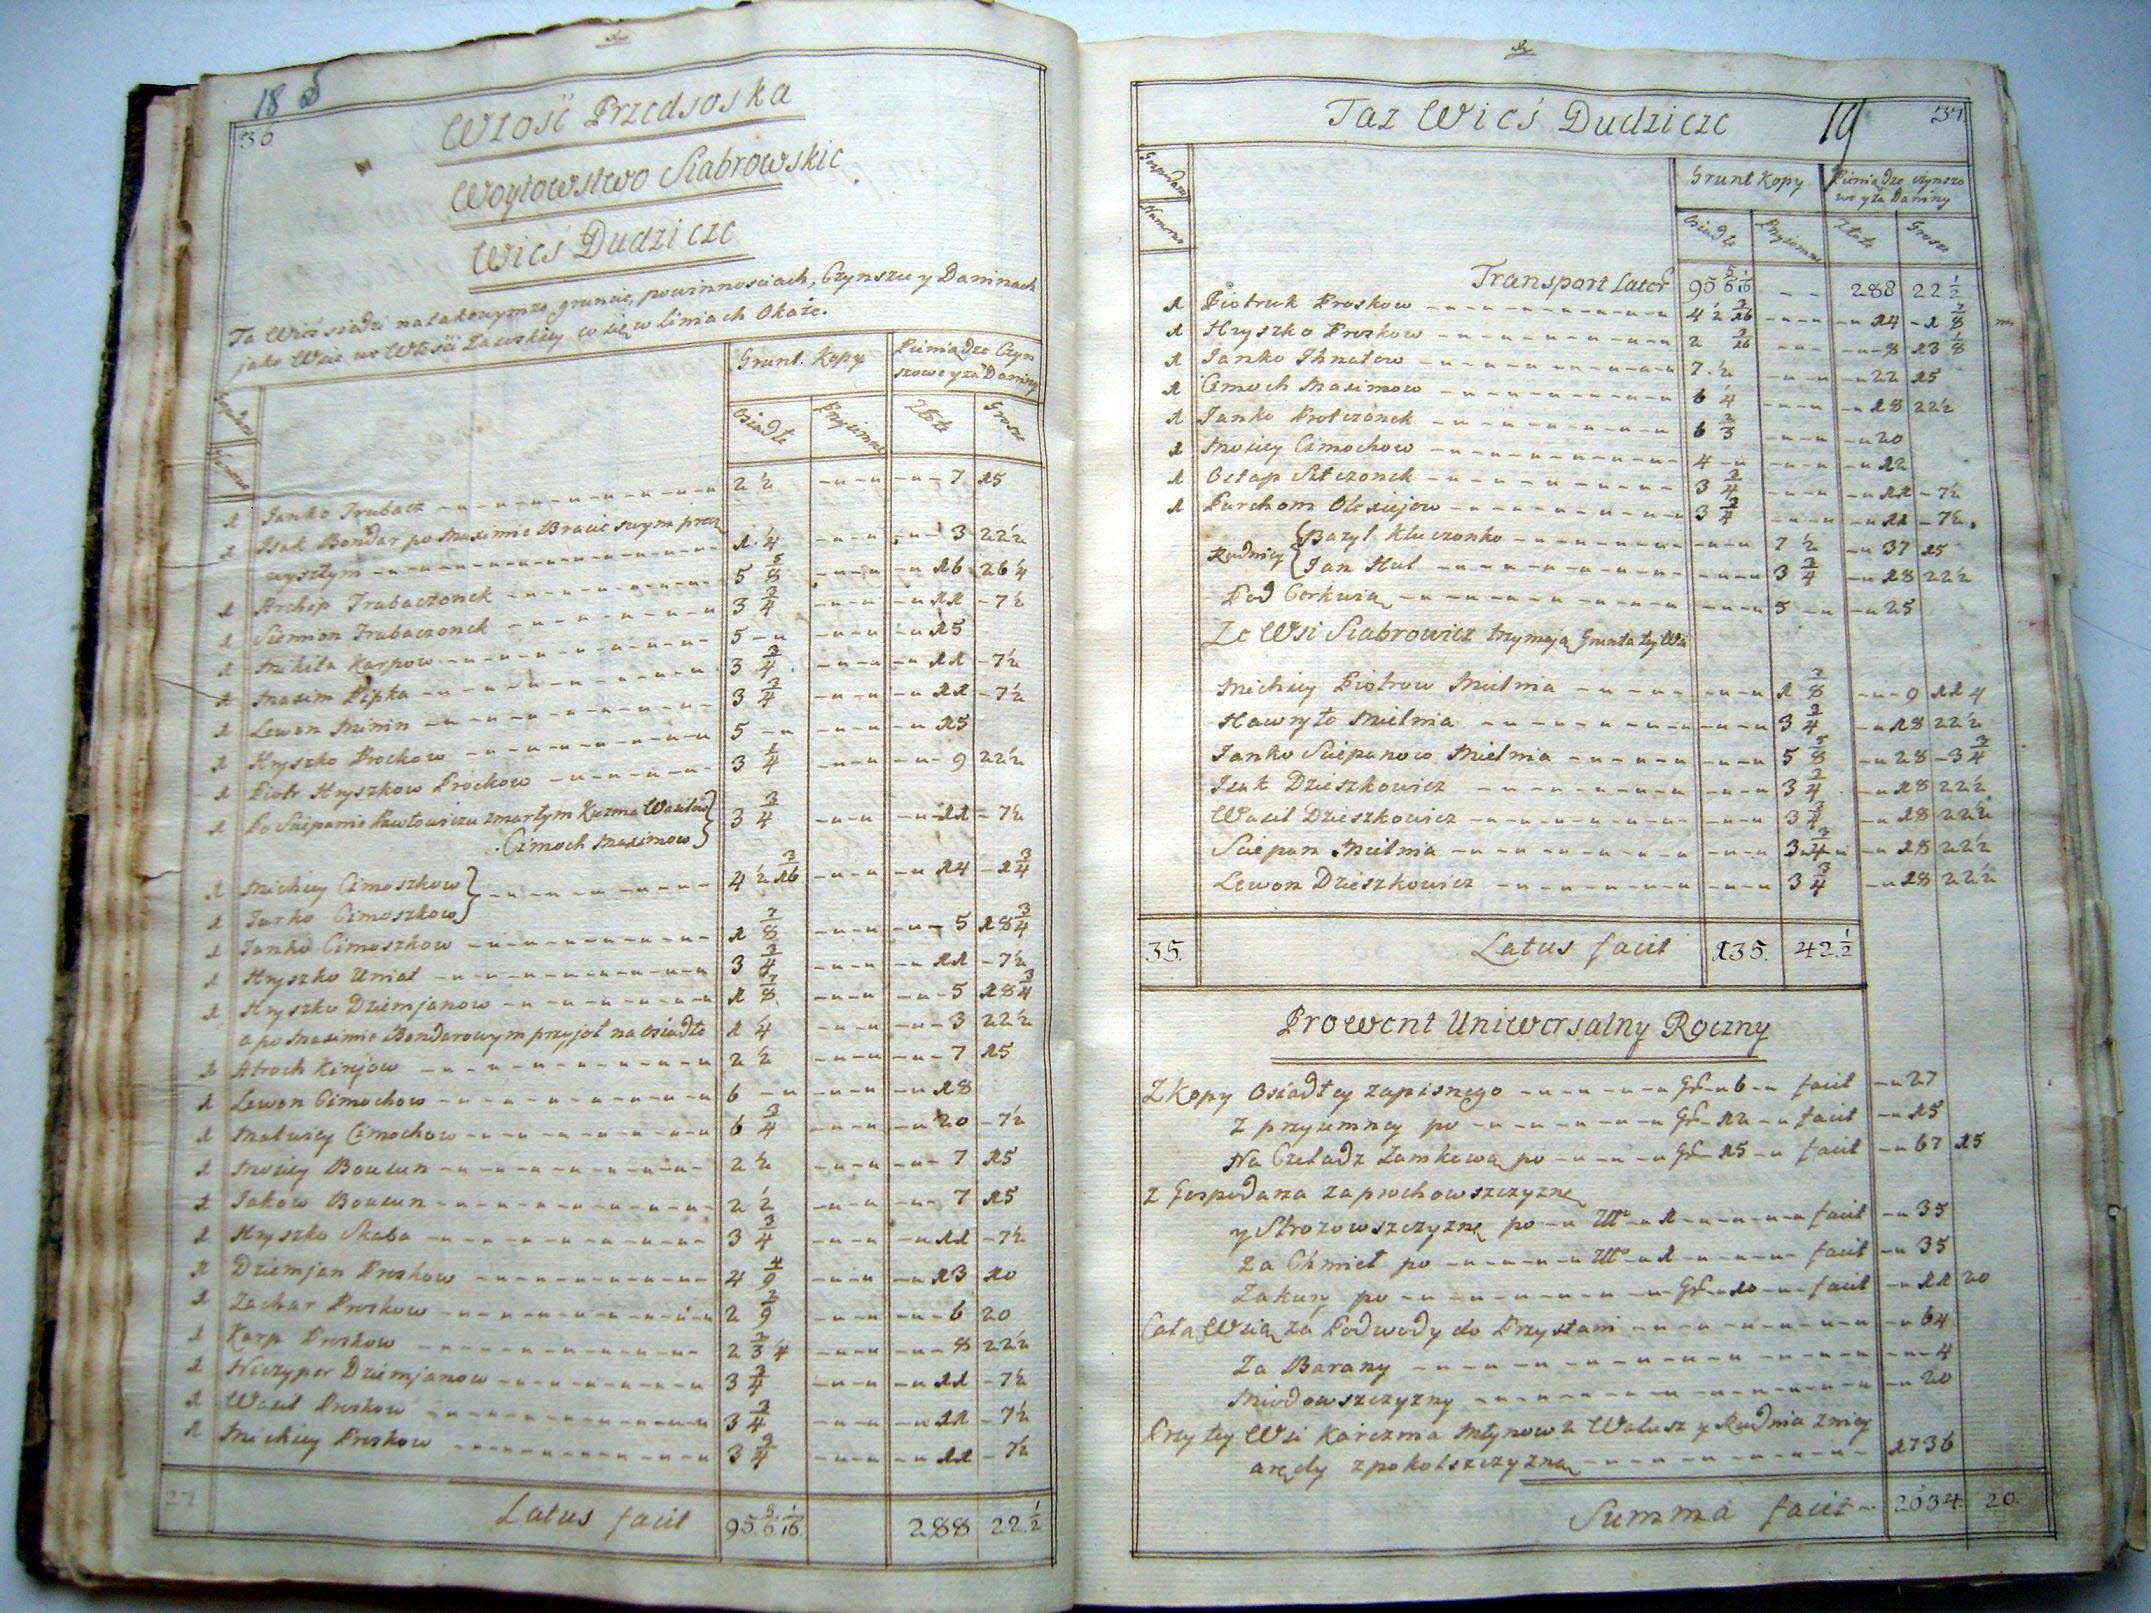 18
36
Włość Przedsoska
Woytowstwo Siabrowskie
Wieś Dudzicze
Ta Wieś siedzi na takowymże gruncie, powinnosciach, Czynszu y Daninach
jako Wsie we Włości Zawskiey w się w Liniach Okaże.
Grunt. Kopy
Pieniądze Czyn
szowe y za Daniny
Osiadłe Przyiemne Złote Grosze
1 Janko Trubacz 2 ½ 7 15
1 Isak Bondar po Maximie Bracie swym precz
wyszłym 1 ¼ 3 22½
1 Archip Trubaczonek 5 5/8 16 26¼
1 Siemion Trubaczonek 3 3/4 11 7½
1 Mikita Karpow 5 15
1 Maxim Pipka 3 3/4 11 7½
1 Lewon Minin 3 3/4 11 7½
1 Hryszko Prockow 5 15
1 Piotr Hryszkow Prockow 3 1/4 9 22½
1 Po Sciepanie Pawłowiczu zmarłym Kuzma Wasilow 3 3/4 11 7½
Cimoch Maximow
1 Michiey Cimoszkow 4 ½ 3/16 14 1 3/4
1 Jurko Cimoszkow
1 Janko Cimoszkow 1 7/8 5 18 3/4
1 Hryszko Uniat 3 3/4 11 7½
1 Hryszko Dziemjanow 1 7/8 5 18 3/4
a po Maximie Bondarowym przyjoł na osiadłe 1 ¼ 3 22½
1 Atroch Kirejow 2 ½ 7 15
1 Lewon Cimochow 6 18
1 Matwiey Cimochow 6 3/4 20 7½
1 Mosiey Boucun 2 ½ 7 15
1 Jakow Boucun 2 ½ 7 15
1 Hryszko Skaba 3 3/4 11 7½
1 Dziemjan Proskow 4 4/9 13 10
1 Zachar Proskow 2 2/9 6 20
1 Karp Proskow 2 2/3 ¼ 8 22½
1 Niczyper Dziemjanow 3 3/4 11 7½
1 Wasil Proskow 3 3/4 11 7½
1 Michiey Proskow 3 3/4 11 7½
27 Latus facit 95 5/6 1/16 288 22 ½
Taz Wieś Dudzicze 19 37
Gospodarze
Numero
Grunt Kopy
Pieniądze czynszo
we y za Daniny
Osiadłe Przyiemne Złote Grosze
Transport Later 95 5/6 1/16 288 22 ½
1 Piotruk Proskow 4 ½ 3/16 14 1 7/8
1 Hryszko Proskow 2 3/16 8 13 1/8
1 Janko Ihnatow 7 ½ 22 15
1 Cimoch Maximow 6 ¼ 18 22½
1 Janko Protczonek 6 2/3 20
1 Mosiey Cimochow 4 12
1 Ostap Sitczonek 3 3/4 11 7½
1 Parchom Olexiejow 3 3/4 11 7½
Rudnicy Bazyl Kluczonko 7 ½ 37 15
Jan Hut 3 3/4 18 22½
Pod Cerkwią 5 25
Ze Wsi Siabrowicz trzymają Grunta tey Wsi
Michiey Piotrow Mielnia 1 7/8 9 11 4
Hawryło Mielnia 3 3/4 18 22½
Janko Sciepanow Mielnia 5 5/8 28 3 3/4
Isak Dzieszkowicz 3 3/4 18 22½
Wasil Dzieszkowicz 3 3/4 18 22½
Sciepan Mielnia 3 3/4 18 22½
Lewon Dzieszkowicz 3 3/4 18 22½
35. Latus facit 135. 42. ½
Prowent Uniwersalny Roczny
Z Kopy Osiadłey zapisnego Gr 6 facit 27
Z przyiemney po Gr 12 facit 15
Na Czeladz Zamkową po Gr 15 facit 67 15
Z Gospodarza za prochowszczyznę
y Strozowszczyznę po Zł 1 facit 35
Za Chmiel po Zł 1 facit 35
Za kury po Gr 10 facit 11 20
Cała Wsia za Podwody do Przystani 64
Za Barany 4
Miodowszczyzny 20
Przy tey Wsi Karczma Młynow 2 Walusz y Rudnia z niey
arędy z pokolszczyzną 1736
Summa facit 2634. 20.